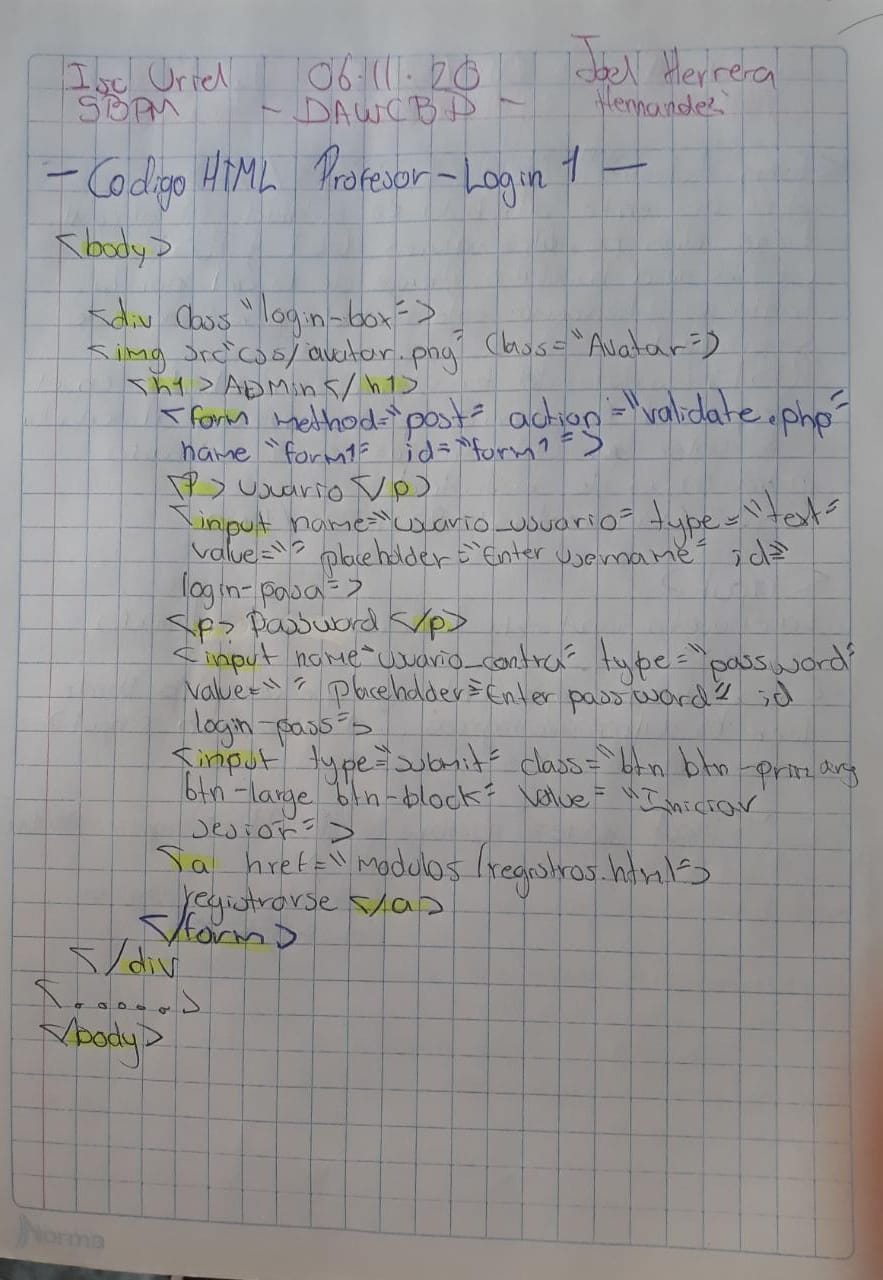 Isc Uriel 06.11.20 Joel Herrera
5BPM - DAWCBD - Hernandez
- Codigo HTML Profesor-Login 1 -
<body>
<div Class "login-box"=>
<img src"css/avatar.png" Class="Avatar"=>
<h1>ADMin</h1>
<form method="post" action="validate.php"
name "form1" id="form1">
<P>Usuario</p>
<input name="usuario_usuario" type="text"
value="" placeholder="Enter username" id=
login-pasa">
<p>Password</p>
<input name="usuario_contra" type="password"
value="" Placeholder="Enter password" id
login-pass">
<input type="submit" class="btn btn-primary
btn-large btn-block" value="Iniciar
sesion">
<a href="modulos/registros.html">
registrarse </a>
</form>
</div
<......>
</body>
Norma